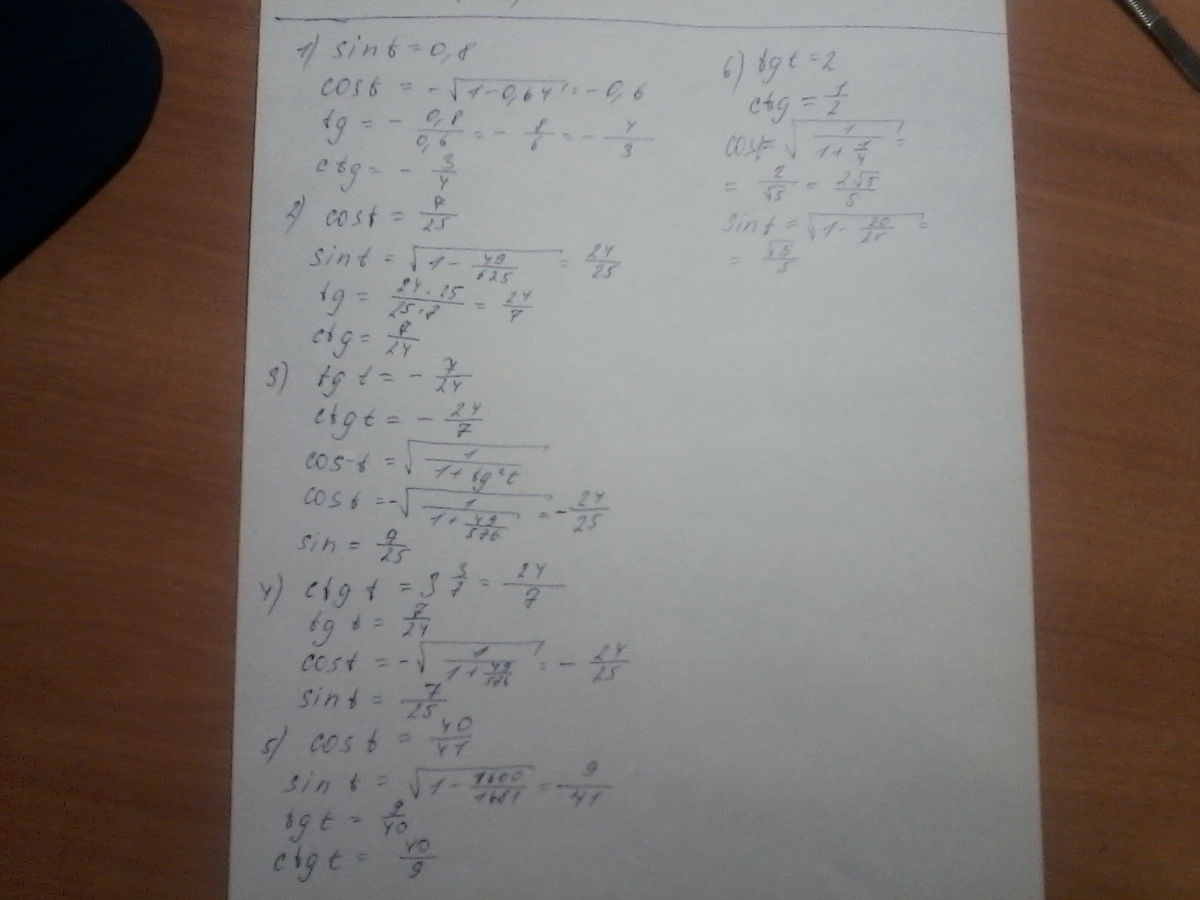 1) sin t = 0,8
cos t = -√(1-0,64) = -0,6
tg = - 0,8/0,6 = - 8/6 = - 4/3
ctg = - 3/4
2) cos t = 7/25
sin t = √(1 - 49/625) = 24/25
tg = 24·25/25·7 = 24/7
ctg = 7/24
3) tg t = - 7/24
ctg t = - 24/7
cos t = √(1/(1+tg²t))
cos t = -√(1/(1+49/576)) = - 24/25
sin = 7/25
4) ctg t = 3 3/7 = 24/7
tg t = 7/24
cos t = -√(1/(1+49/576)) = - 24/25
sin t = 7/25
5) cos t = 40/41
sin t = √(1 - 1600/1681) = 9/41
tg t = 9/40
ctg t = 40/9
6) tg t = 2
ctg = 1/2
cos t = √(1/(1+1/4)) =
= 2/√5 = 2√5/5
sin t = √(1 - 20/25) =
= √5/5